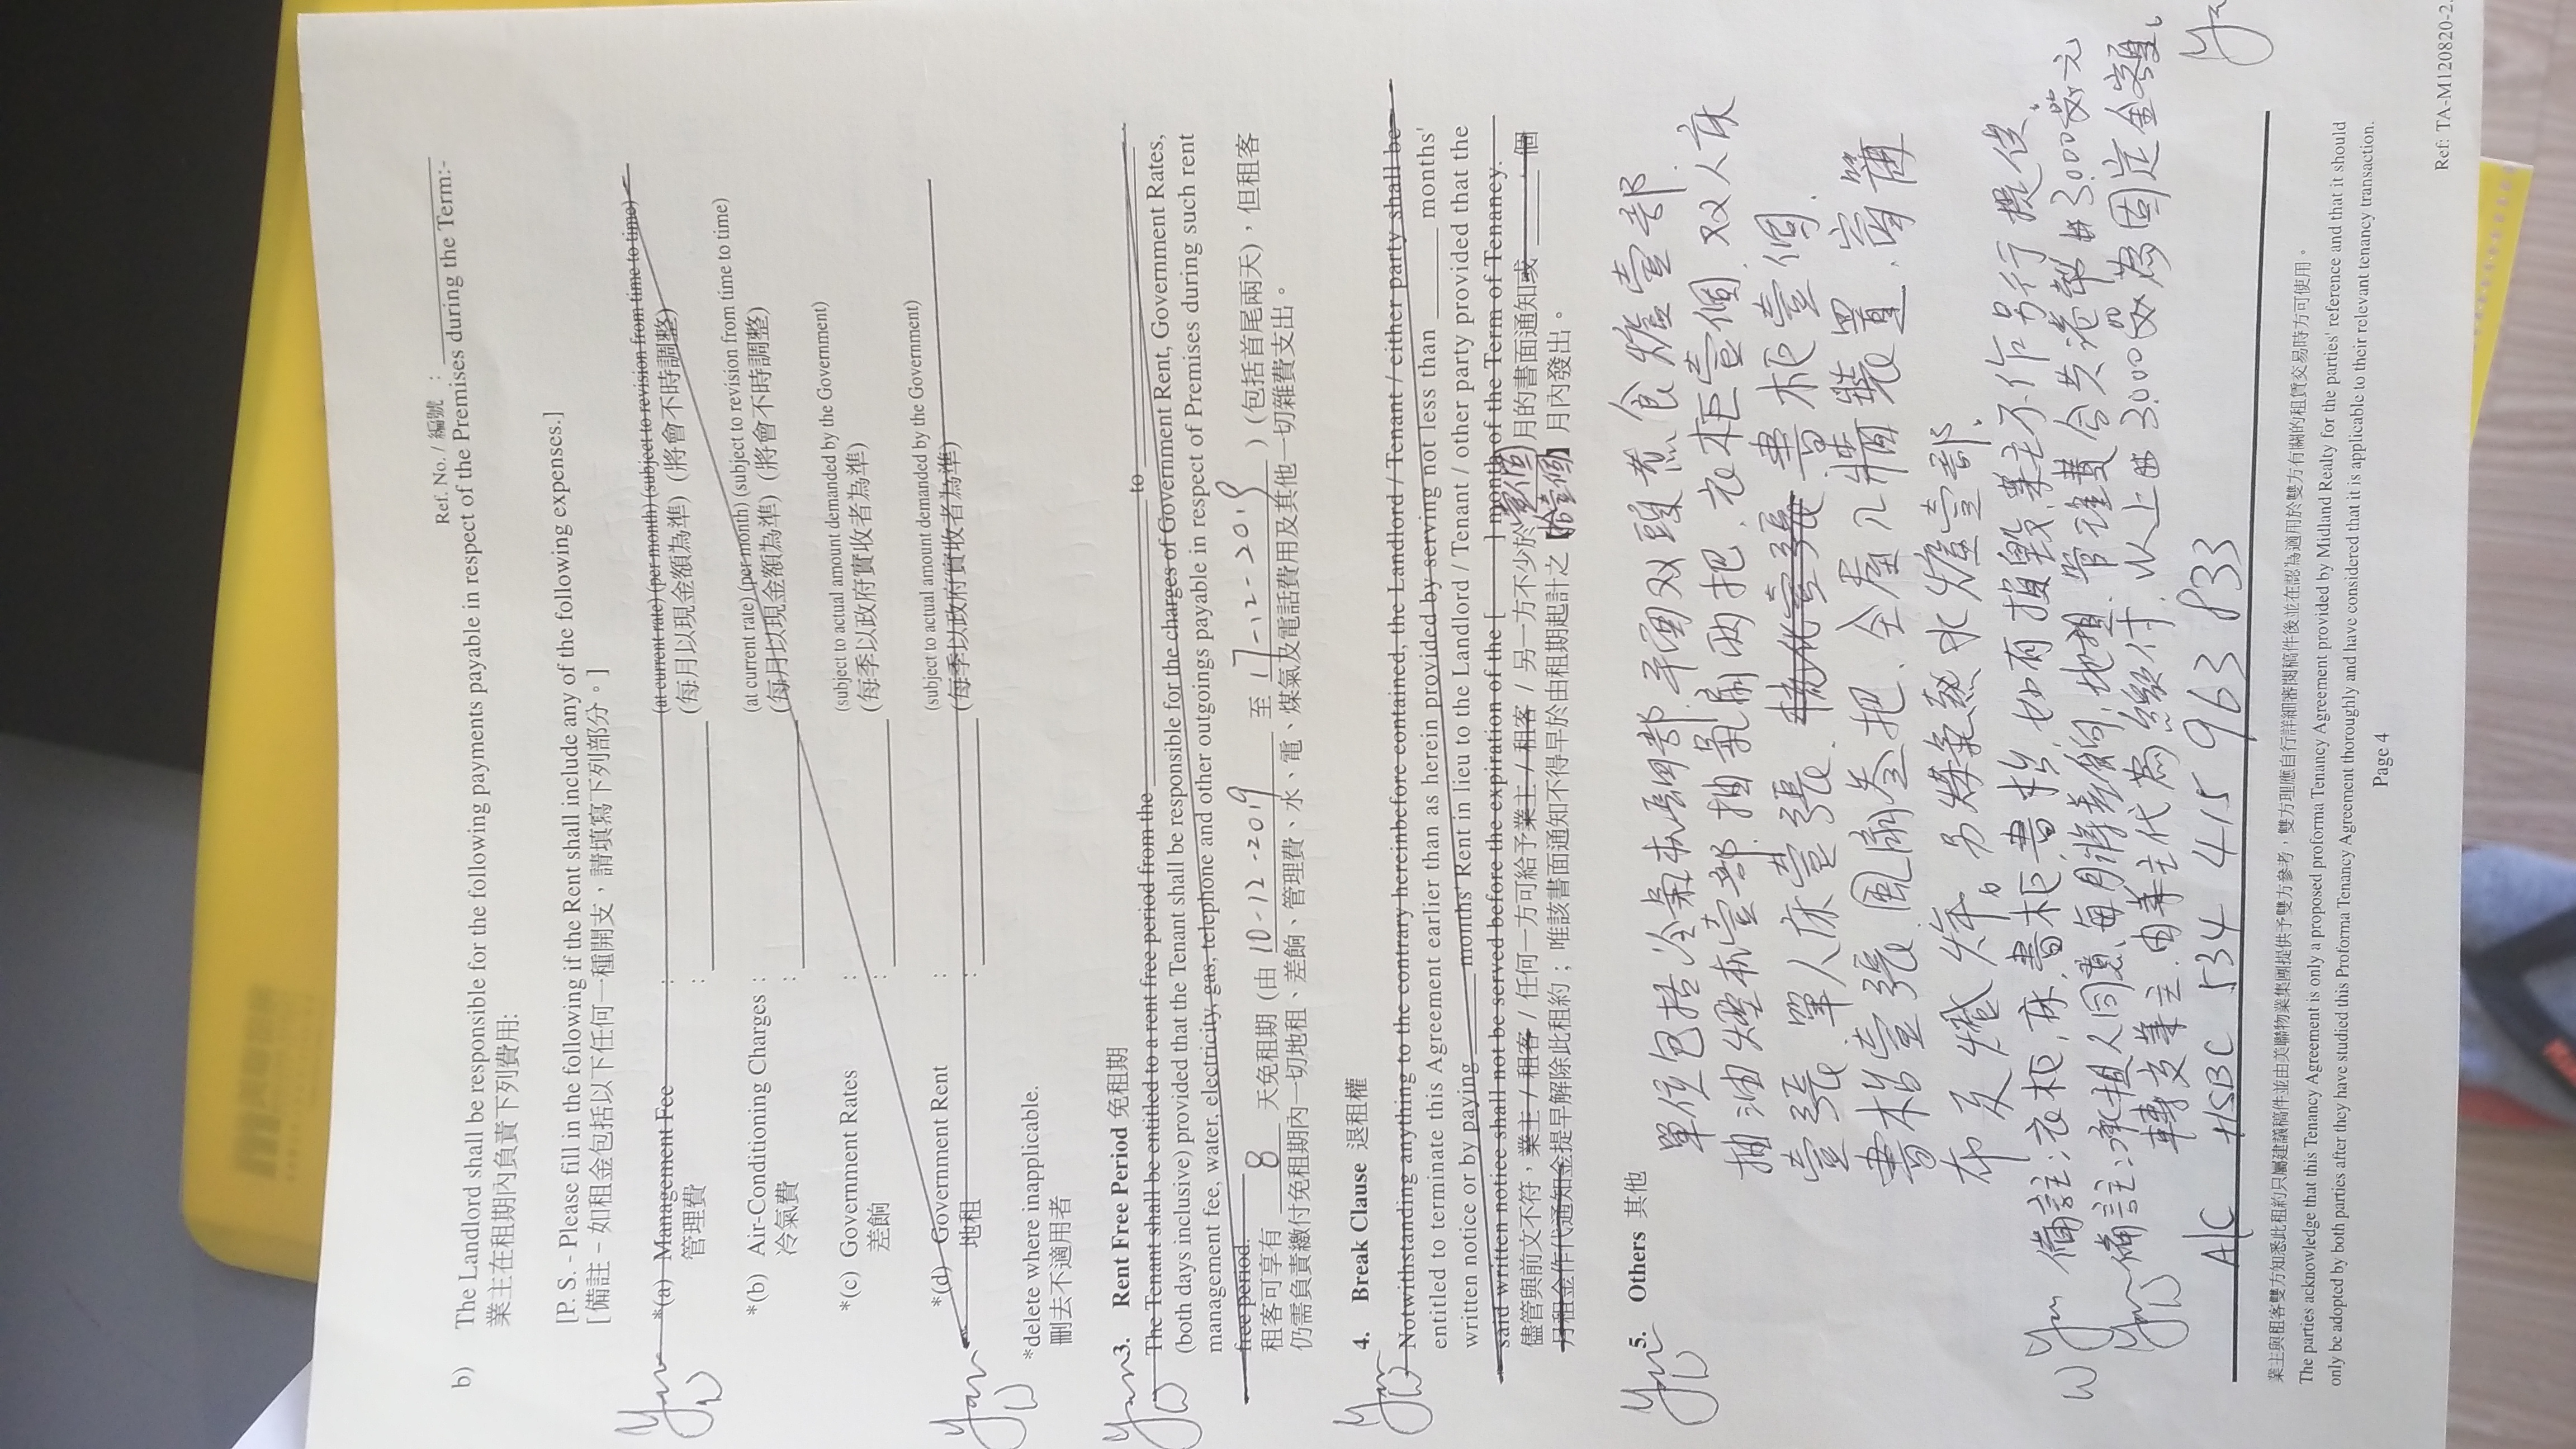 Ref. No. / 編號 :
b) The Landlord shall be responsible for the following payments payable in respect of the Premises during the Term:-
業主在租期內負責下列費用:
[P. S. - Please fill in the following if the Rent shall include any of the following expenses.]
[備註 – 如租金包括以下任何一種開支，請填寫下列部分。]
*(a) Management Fee : (at current rate) (per month) (subject to revision from time to time)
管理費 : (每月以現金額為準) (將會不時調整)
*(b) Air-Conditioning Charges : (at current rate) (per month) (subject to revision from time to time)
冷氣費 : (每月以現金額為準) (將會不時調整)
*(c) Government Rates : (subject to actual amount demanded by the Government)
差餉 : (每季以政府實收者為準)
*(d) Government Rent : (subject to actual amount demanded by the Government)
地租 : (每季以政府實收者為準)
*delete where inapplicable.
刪去不適用者
3. Rent Free Period 免租期
The Tenant shall be entitled to a rent free period from the to
(both days inclusive) provided that the Tenant shall be responsible for the charges of Government Rent, Government Rates,
management fee, water, electricity, gas, telephone and other outgoings payable in respect of Premises during such rent
free period.
租客可享有 8 天免租期 (由 10-12-2019 至 17-12-2019 ) (包括首尾兩天)，但租客
仍需負責繳付免租期內一切地租、差餉、管理費、水、電、煤氣及電話費用及其他一切雜費支出。
4. Break Clause 退租權
Notwithstanding anything to the contrary hereinbefore contained, the Landlord / Tenant / either party shall be
entitled to terminate this Agreement earlier than as herein provided by serving not less than months'
written notice or by paying months' Rent in lieu to the Landlord / Tenant / other party provided that the
said written notice shall not be served before the expiration of the [ ] month of the Term of Tenancy.
儘管與前文不符，業主 / 租客 / 任何一方可給予業主 / 租客 / 另一方不少於壹個月的書面通知或 個
月租金作代通知金提早解除此租約；唯該書面通知不得早於由租期起計之 [拾壹個] 月內發出。
5. Others 其他
單位包括冷氣機 部. 平面双頭煮食爐壹部.
抽油煙機壹部. 抽氣扇兩把. 衣柜壹個. 双人床
壹張. 單人床壹張. 書柜壹個.
書枱壹張. 風扇叁把. 全屋 裝置. 窗簾
布. 另煤氣熱水爐壹部.
備註: 衣柜, 床, 書柜, 書枱, 如有損毀, 業主不作另行提供.
備註: 承租人同意, 每月將差餉, 地租, 管理費合共港幣#3000
轉交業主. 由業主代為繳付. 以上#3000 為固定金額.
A/C HSBC 534 415 963 833
業主與租客雙方知悉此租約只屬建議稿件並由美聯物業集團提供予雙方參考，雙方理應自行詳細審閱稿件後並在認為適用於雙方有關的租賃交易時方可使用。
The parties acknowledge that this Tenancy Agreement is only a proposed proforma Tenancy Agreement provided by Midland Realty for the parties' reference and that it should
only be adopted by both parties after they have studied this Proforma Tenancy Agreement thoroughly and have considered that it is applicable to their relevant tenancy transaction.
Page 4
Ref: TA-M120820-2.